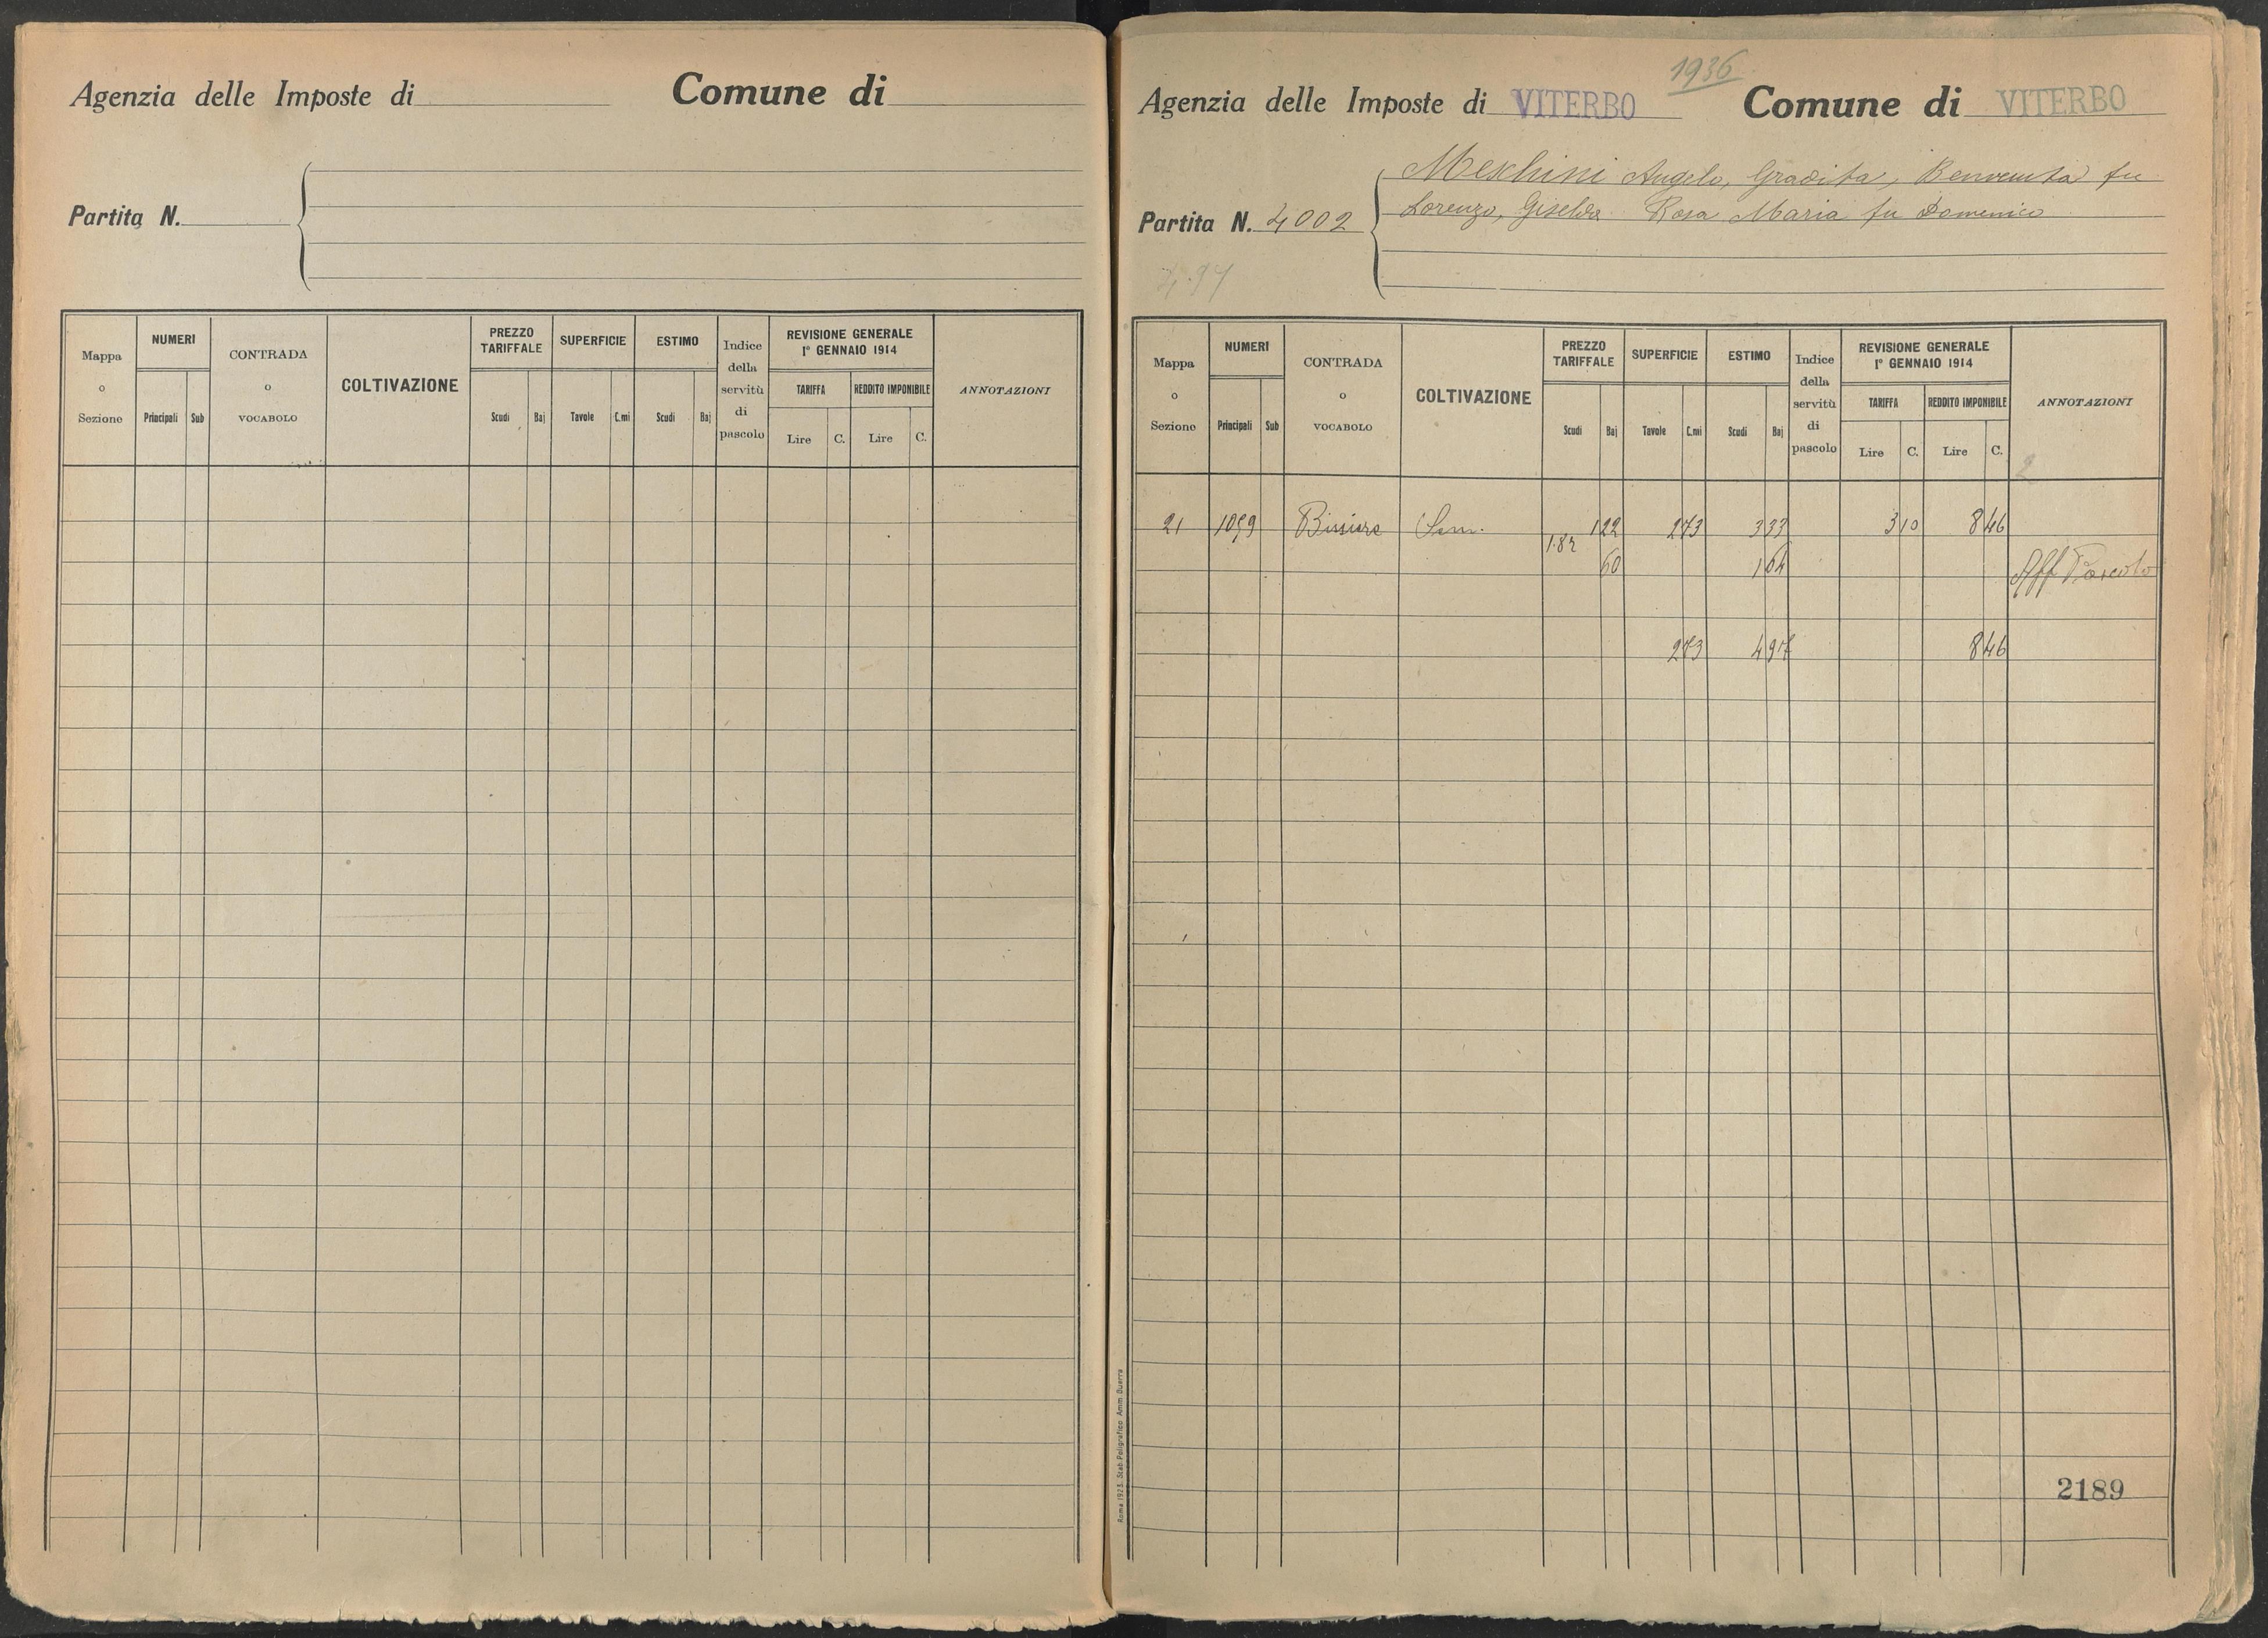 Agenzia delle Imposte di
Comune di
Partita N.
Mappa o Sezione
NUMERI
Principali
Sub
CONTRADA o VOCABOLO
COLTIVAZIONE
PREZZO TARIFFALE
Scudi
Baj
SUPERFICIE
Tavole
C.mi
ESTIMO
Scudi
Baj
Indice della servitù di pascolo
REVISIONE GENERALE
1º GENNAIO 1914
TARIFFA
Lire
C.
REDDITO IMPONIBILE
Lire
C.
ANNOTAZIONI
1936
Agenzia delle Imposte di VITERBO
Comune di VITERBO
Meschini Angelo, Gradita, Benvenuta fu
Lorenzo, Giselda Rosa Maria fu Domenico
Partita N. 4002
4.97
Mappa o Sezione
NUMERI
Principali
Sub
CONTRADA o VOCABOLO
COLTIVAZIONE
PREZZO TARIFFALE
Scudi
Baj
SUPERFICIE
Tavole
C.mi
ESTIMO
Scudi
Baj
Indice della servitù di pascolo
REVISIONE GENERALE
1º GENNAIO 1914
TARIFFA
Lire
C.
REDDITO IMPONIBILE
Lire
C.
ANNOTAZIONI
2
21 1099 Sem. 1 22 2 73 3 33 3 10 8 46
1.82 60 1 64 Aff Pascolo
2 73 4 97 8 46
2189
Roma 1923. Stab. Poligrafico Amm. Guerra